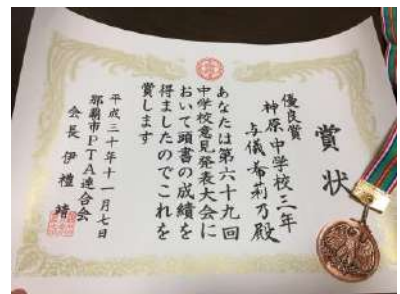 賞状
優良賞
神原中学校三年
与儀希莉乃殿
あなたは第六十九回
中学校意見発表大会に
おいて頭書の成績を
得ましたのでこれを
賞します
平成三十年十一月七日
那覇市PTA連合会
会長 伊禮 靖